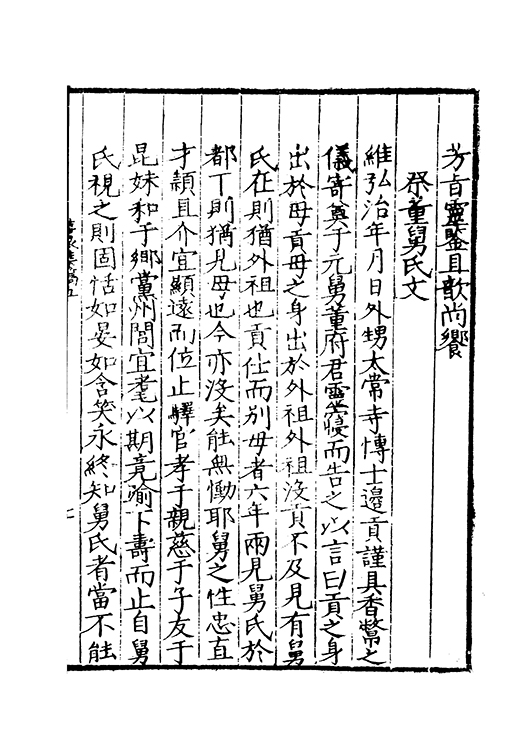 芳旨靈鑒且歆尚饗
祭董舅氏文
維弘治年月日外甥太常寺博士邊貢謹具香幣之
儀寄奠于元舅董府君靈座復而告之以言曰貢之身
出於母貢母之身出於外祖外祖沒貢不及見有舅
氏在則猶外祖也貢仕而別母者六年兩見舅氏於
都下則猶見母也今亦沒矣能無慟耶舅之性忠直
才穎且介宜顯遠而位止驛官孝于親慈于子友于
昆妹和于鄉黨州閭宜耄以期竟踰下壽而止自舅
氏視之則固恬如晏如含笑永終知舅氏者當不能